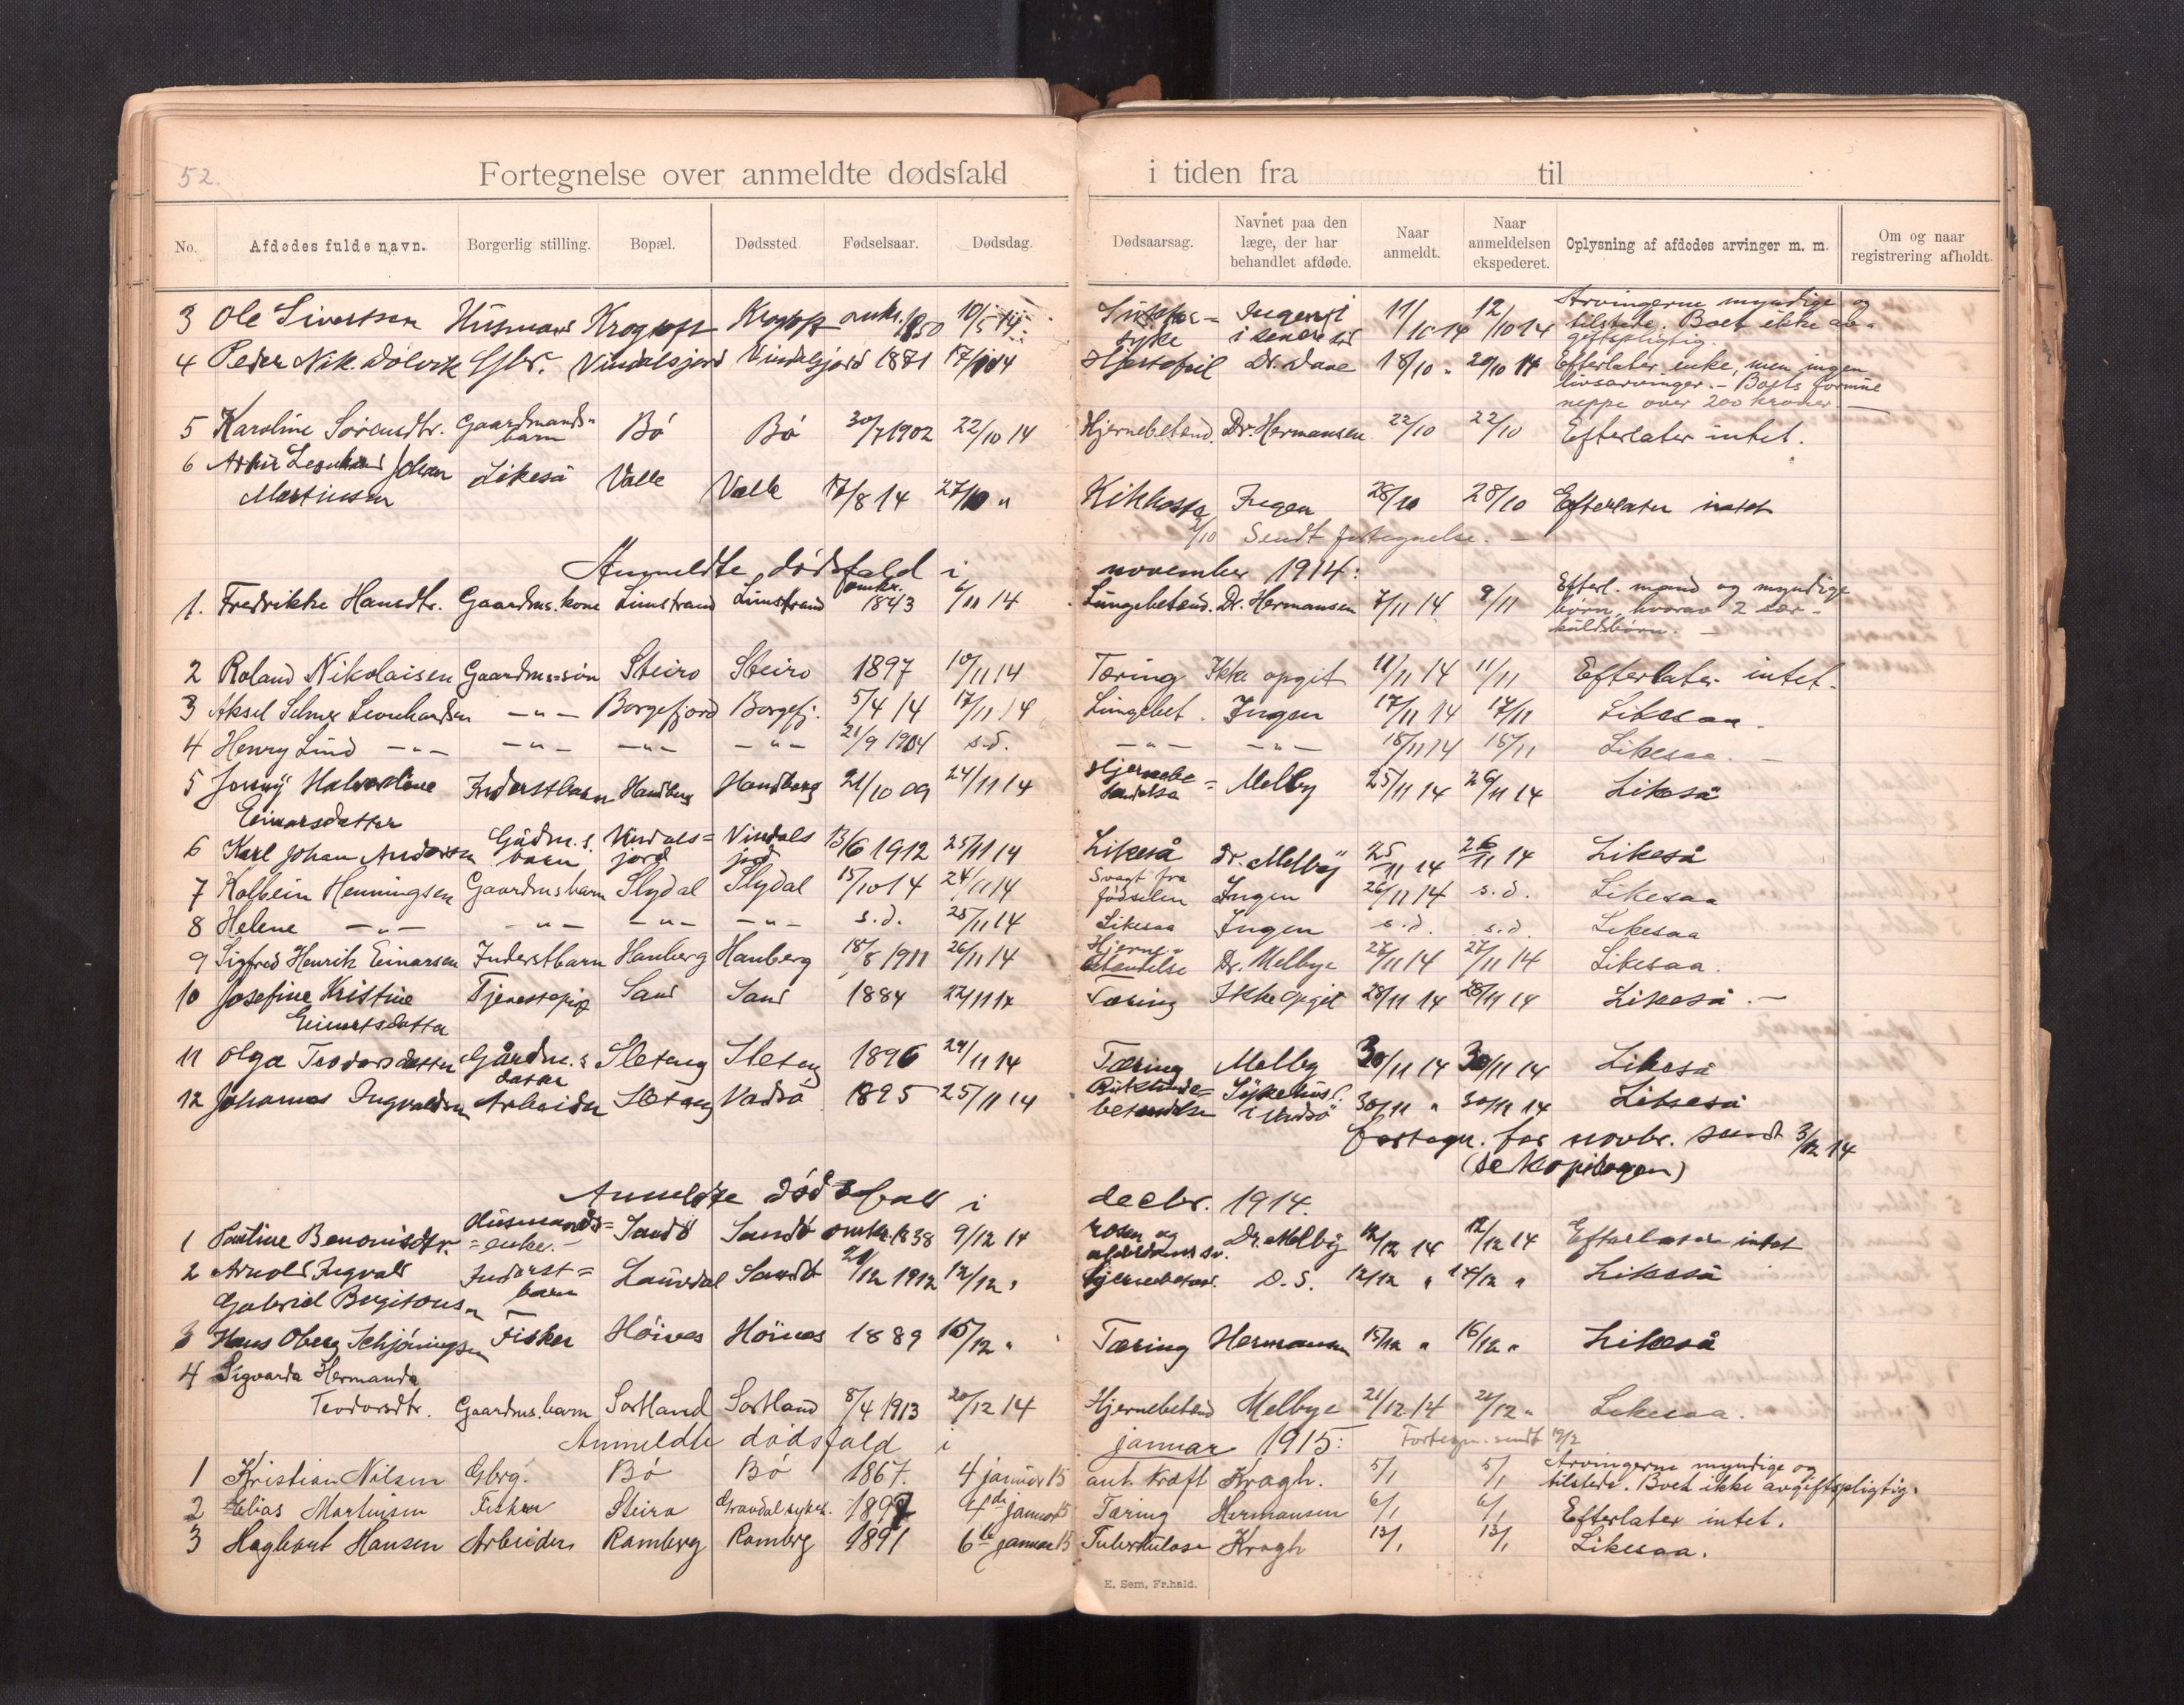 52.
Fortegnelse over anmeldte dødsfald i tiden fra til
No. Afdødes fulde navn. Borgerlig stilling. Bopæl. Dødssted Fødselsaar. Dødsdag. Dødsaarsag. Navnet paa den læge, der har behandlet afdøde. Naar anmeldt. Naar anmeldelsen ekspederet. Oplysning af afdødes arvinger m. m. Om og naar registrering afholdt.
3 Ole Sivertsen Husmand Krogtoft Krogtoft omkr. 1850 10/ 14 Sukkersyke Ingen i senere tid 11/10 14 12/10 14 Arvingerne myndige og tilstede. Boet ikke avgiftspligtig.
4 Peder Nik. Dolvik Gbr. Vindalsjord Vindalsjord 1871 17/10 14 Hjertefeil Dr. Daae 18/10 " 20/10 14 Efterlater enke, men ingen livsarvinger. - Boets formue neppe over 200 kroner. -
5 Karoline Sörensdtr. Gaardmandsbarn Bö Bö 30/7 1902 22/10 14 Hjernebetænd. Dr. Hermansen 22/10 22/10 Efterlater intet.
6 Artur Leonhard Johan Martinsen Likeså Valle Valle 17/8 14 27/10 " Kikhoste Ingen 28/10 28/10 Efterlater intet
/10 Sendt fortegnelse. -
Anmeldte dödsfald i november 1914:
1. Fredrikke Hansdtr. Gaardms. kone Limstrand Limstrand omkr. 1843 6/11 14 Lungebetænd. Dr. Hermansen 7/11 14 9/11 Efterl. mand og myndige börn, hvorav 2 særkuldsbörn. -
2 Roland Nikolaisen Gaardms. sön Steiro Steiro 1897 10/11 14 Tæring Ikke opgit 11/11 14 11/11 Efterlater intet.
3 Aksel Selmer Leonhardsen - " - Borgefjord Borgefj. 5/4 14 17/11 14 Lungebet. Ingen 17/11 14 17/11 Likesaa.
4 Henry Lind - " - - " - - " - - " - 21/9 1904 s.d. - " - - " - 18/11 14 18/11 Likesaa. -
5 Jenny Halvordine Einarsdatter Inderstbarn Handberg Handberg 21/10 09 24/11 14 Hjernebetændelse Melby 25/11 14 26/11 14 Likeså
6 Karl Johan Andersen Gådm.s barn Vindalsjord Vindalsjord 13/6 1912 25/11 14 Likeså Dr. Melby 25/11 14 26/11 14 Likeså
7 Kolbein Henningsen Gaardmsbarn Slydal Slydal 15/10 14 24/11 14 Svagt fra födselen Ingen 26/11 14 s.d. Likesaa
8 Helene - " - - " - - " - - " - s.d. 25/11 14 Likesaa Ingen s.d. s.d. Likesaa
9 Sigfred Henrik Einarsen Inderstbarn Hanberg Hanberg 18/8 1911 26/11 14 Hjernebetændelse Dr. Melbye 27/11 14 27/11 14 Likesaa.
10 Josefine Kristine Einertsdatter Tjenestepige Sand Sand 1884 22/11 14 Tæring Ikke opgit 28/11 14 28/11 14 Likeså. -
11 Olga Teodorsdatter Gårdm.s datter Sleteng Sleteng 1896 29/11 14 Tæring Melby 30/11 14 30/11 14 Likeså
12 Johannes Ingvaldsen Arbeider Sleteng Vadsö 1895 25/11 14 Bukhindebetændelse Sykehus i Vadsö 30/11 " 30/11 14 Likeså
fortegn. for novbr. sendt 3/12 14
(se kopibogen)
Anmeldte dödsfall i decbr. 1914.
1 Pauline Benonisdtr. Husmandsenke. - Sandö Sandö omkr. 1838 9/12 14 rosen og alderdomssv. Dr. Melby 12/12 14 12/12 14 Efterlater intet
2 Arnold Ingvald Gabriel Bergitonsen Inderstbarn Laurdal Sandö 21/12 1912 12/12 " Hjernebetænd. D.S. 12/12 " 14/12 " Likeså
3 Hans Oberg Schjöningsen Fisker Höines Höines 1889 15/12 " Tæring Hermansen 15/12 " 16/12 " Likeså
4 Sigvarda Hermanda Teodorsdtr. Gaardms. barn Sortland Sortland 8/4 1913 20/12 14 Hjernebetænd Melbye 21/12 14 21/12 " Likesaa.
Anmeldte dödsfald i januar 1915: Fortegn. sendt 19/2
1 Kristian Nilsen Gbrg. Bö Bö 1867. 4 januar 15 ant. kræft Kragh. 5/1 5/1 Arvingerne myndige og tilstede. Boet ikke avgiftspligtig.
2 Elias Martinsen Fisker Steira Gravdal sykeh. 1897 4de januar 15 Tæring Hermansen 6/1 6/1 Efterlater intet.
3 Hagbart Hansen Arbeider Ramberg Ramberg 1891 6te januar 15 Tuberkulose Kragh 13/1 13/1 Likesaa.
E. Sem, Fr.hald.